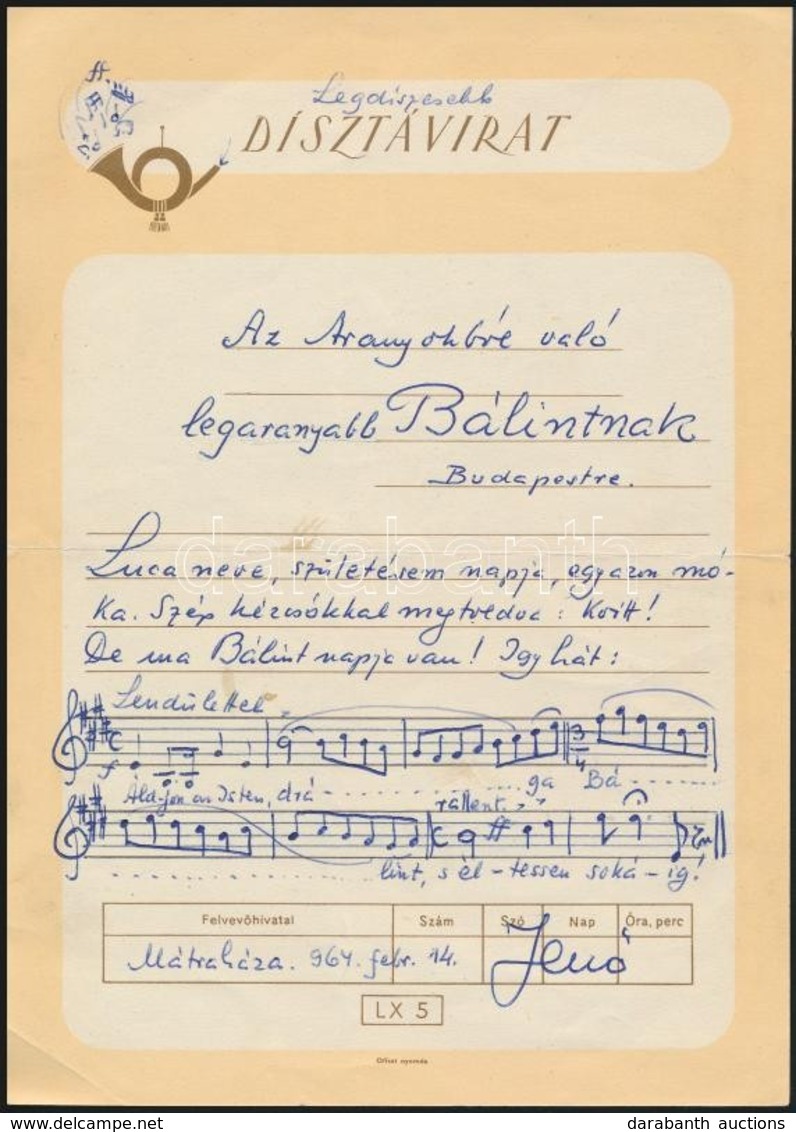 ff.
Legdíszesebb
DÍSZTÁVIRAT
Az való
legaranyabb Bálintnak
Budapestre.
Luca neve, születésem napja, egyazon mó-
ka. Szép kézcsókkal megtoldva: Kvitt!
De ma Bálint napja van! Igy hát:
Lendülettel
f
Áld-jon an Isten, drá - - - ga Bá - - -
rallent.
ff
lint, s él-tessen soká-ig!
Felvevőhivatal Szám Szó Nap Óra, perc
Mátraháza. 964. febr. 14. Jenő
LX 5
Offset nyomda
darabanth
darabanth auctions